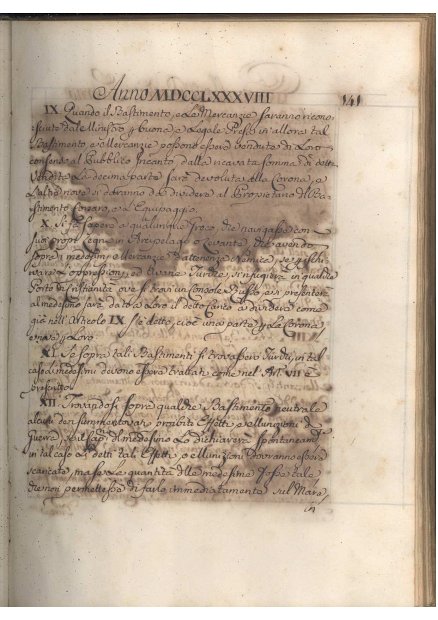 Anno MDCCLXXXVIII 141
IX. Quando il Bastimento, e Le Mercanzie saranno ricono,
sciute dal Ministro p buona e Legale Presa, in allora tal
Bastimento, e Mercanzie possono essere vendute di Loro
consenso al Pubblico Incanto, dalla ricavata somma di detta
Vendita La decima parte sarà devoluta alla Corona, e
L'altre nove si dovranno dividere al Proprietario del Ba-
stimento Corsaro, e a L'Equipaggio.
X. Si fa sapere a qualunque Greco, che navigasse con
suoi propri Legni in Arcipelago, e Levante, che avendo
sopra i medesimi Mercanzie Nemica, se p
e oppressioni, ed Avanie Turche si rifugiera in qualche
Porto in Cristianità, ove si trovi un Console Russo, e si presenterà
al medesimo sarà dato a Loro il detto Conto, e dividera come
già nell' Articolo IX si è detto, cioè una parte p La Corona
e nove p Loro.
XI. Se sopra tali Bastimenti si trovassero Turchi, in tal
caso i medesimi devono essere trattati come nel Art. VII è
prescritto.
XII. Trovandosi sopra qualche Bastimento neutrale
alcuni contrummentovati proibiti Effetti, e Munizioni da
Guerra, se il Capo del medesimo Lo dichiarerà spontaneamen,
in tal caso Li detti tali Effetti, o Munizioni dovranno essere
scaricate, ma se La quantità delle medesime fosse tale
che non permettesse di farlo immediatamente sul Mare,
in